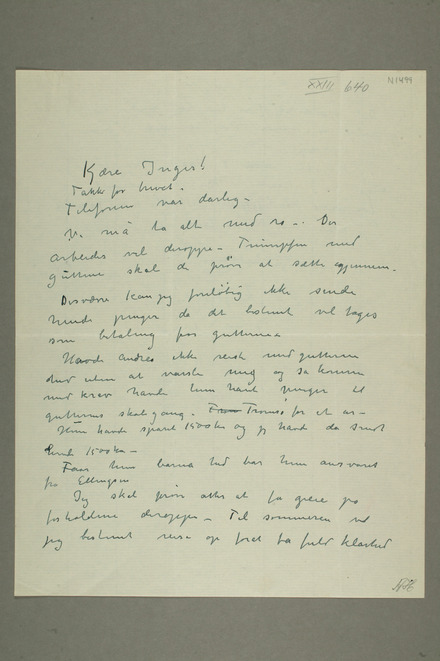 XXIII 640 N1499
Kære Inger!
Takk for brevet.
Telefonen var dårlig –
Vi må ta alt med ro –. Der
arbeides vel deroppe – med
guttene skal de prøve at sætte igjennem –
Desværre kan jeg foreløbig ikke sende
hende penger da det bestemt vil tages
som betaling for guttene
Havde Andrea ikke reist med guttene
uten at varsle mig og så komme
med krav havde hun havt penger til
guttenes skolegang. Tromsø for et år –
Hun havde sparet 1500 kr og jeg havde da sendt
hende 1500 kr –
Faar hun barna har hun ansvaret
fra Ellingsen
Jeg skal prøve atter at få greie på
forholdene deroppe – Til sommeren vil
jeg bestemt reise op for at få fuld klarhed